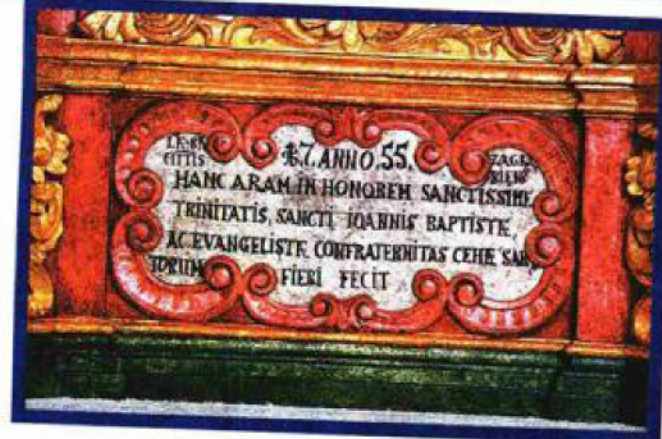 CITTIS 17. ANNO. 55.
HANC ARAM IN HONOREM SANCTISSIME
TRINITATIS, SANCTI IOANNIS BAPTISTE,
AC EVANGELISTE, CONFRATERNITAS CEHE SAR
TORUM FIERI FECIT